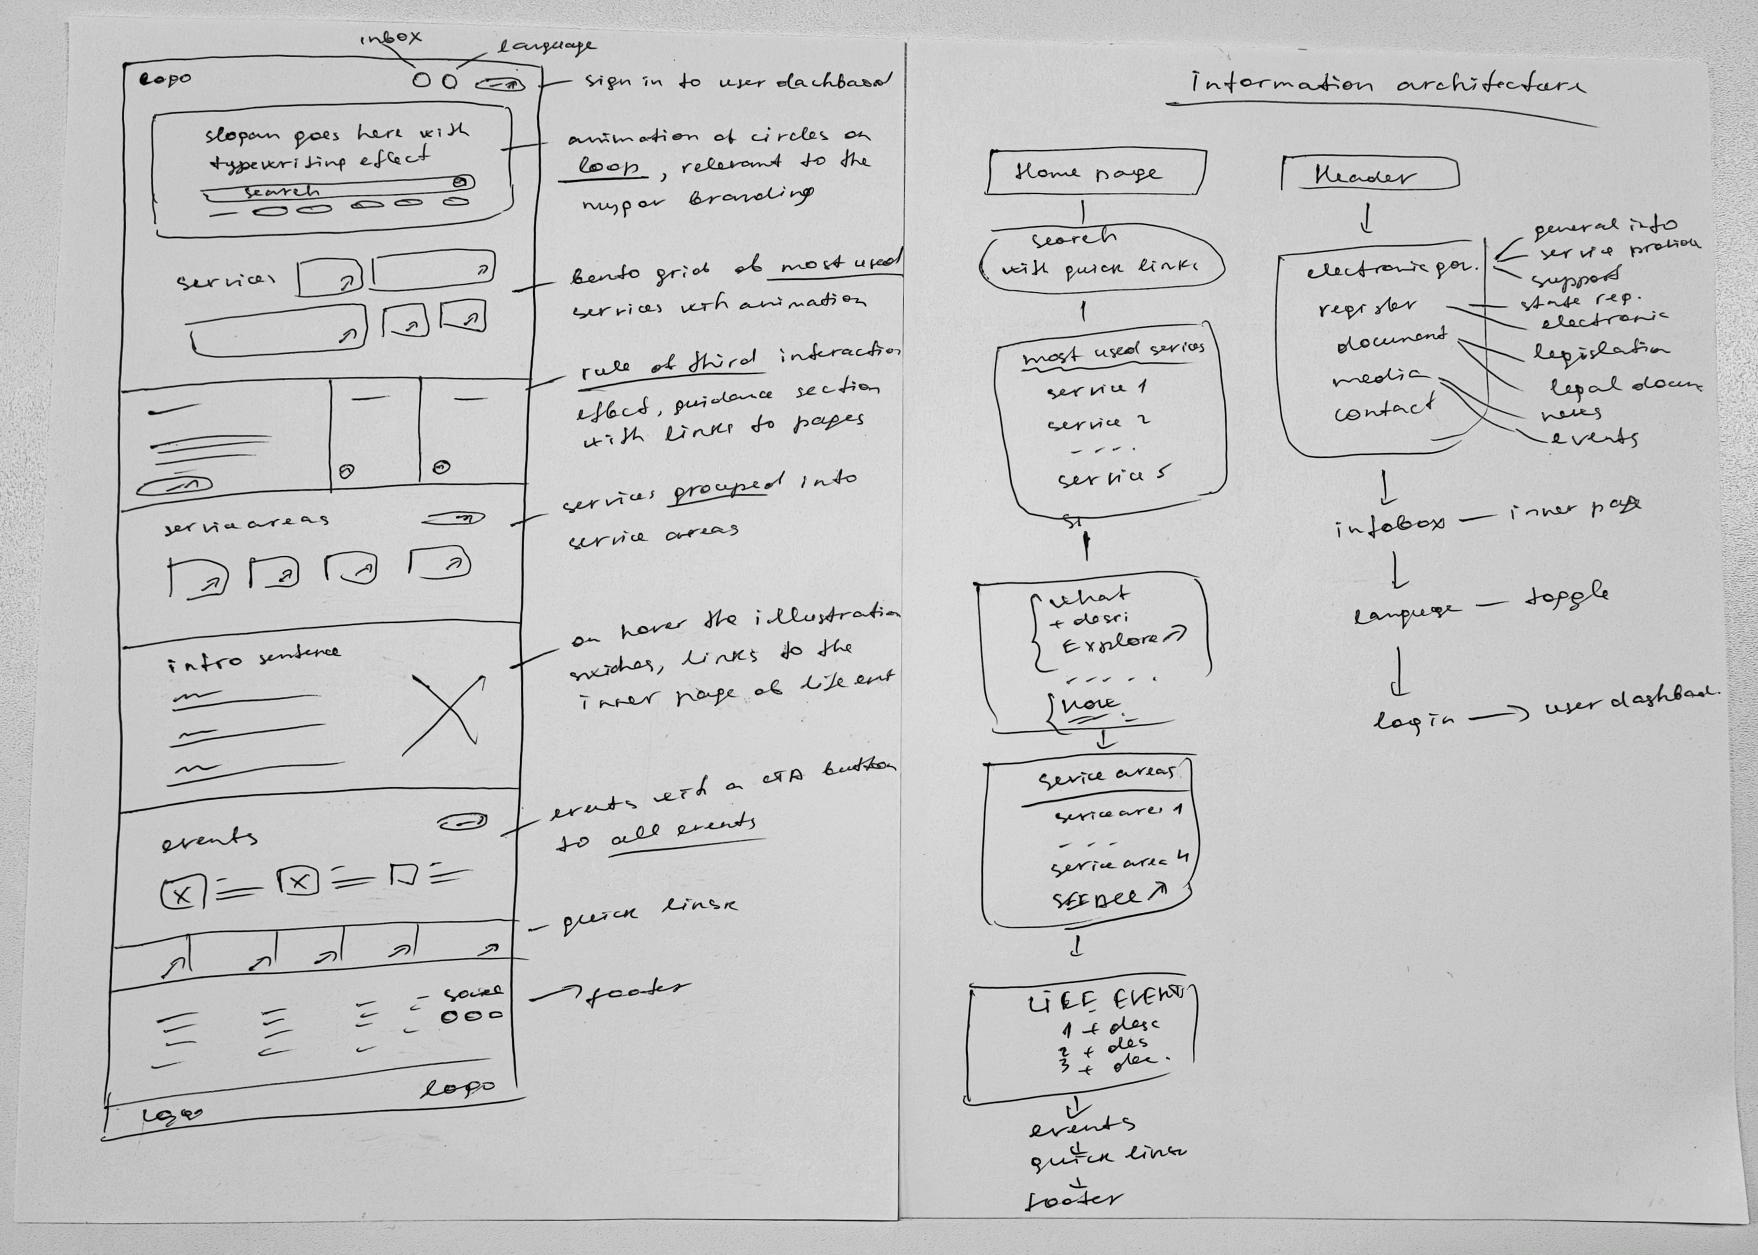 inbox
language
logo
sign in to user dachboard
slogan goes here with
typewriting effect
search
animation of circles on
loop, relevant to the
branding
services
bento grid of most used
services with animation
rule of third interaction
effect, guidance section
with links to pages
service areas
services grouped into
service areas
intro sentence
on hover the illustration
swiches, links to the
inner page of life
events
events with a CTA button
to all events
quick linsk
footer
logo
logo
Information architecture
Home page
search
with quick links
most used servics
service 1
service 2
....
service 5
what
+ descri
Explore
.....
service areas
service area 1
....
service area 4
SEE ALL
LIFE EVENT
1 + desc
2 + des
3 + dec.
events
quick linsk
footer
Header
electronic gov.
general info
service
support
register
state reg.
electronic
document
legislation
legal docum
media
news
events
contact
infobox — inner page
language — toggle
login → user dashboad.